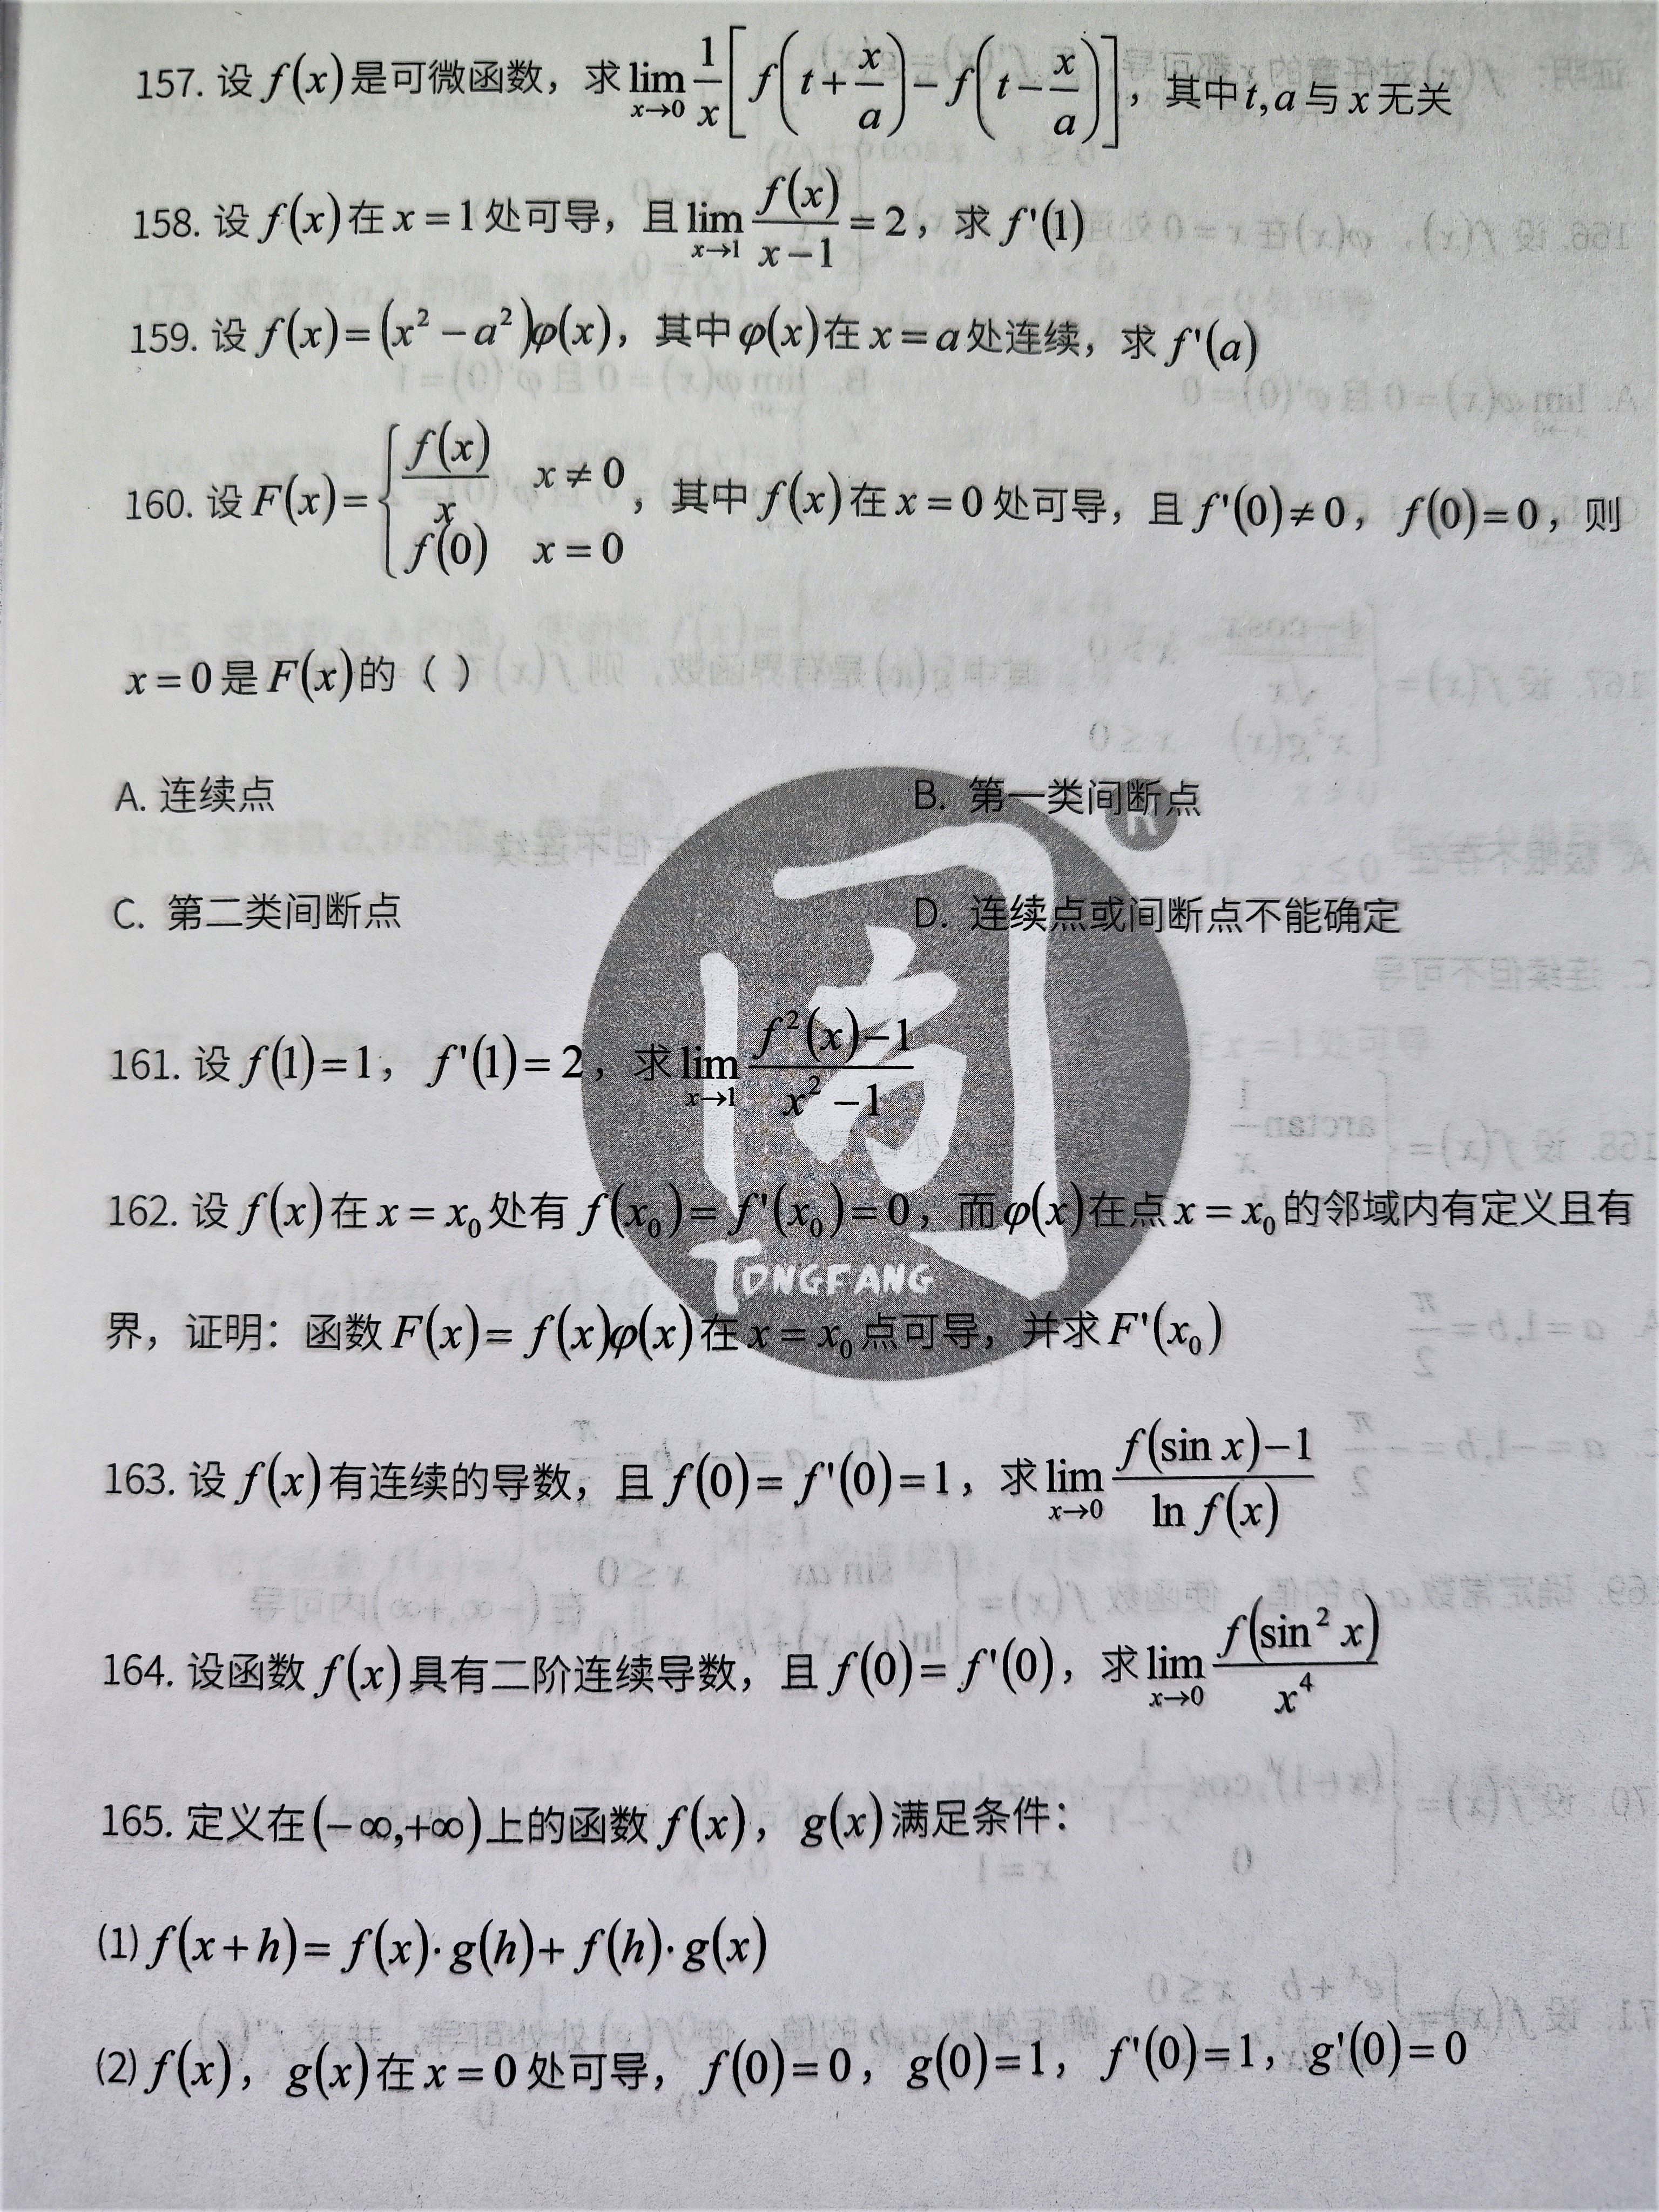 157. 设 f(x) 是可微函数，求 lim_{x→0} \frac{1}{x}[f(t+\frac{x}{a})-f(t-\frac{x}{a})]，其中 t,a 与 x 无关
158. 设 f(x) 在 x=1 处可导，且 lim_{x→1} \frac{f(x)}{x-1}=2，求 f'(1)
159. 设 f(x)=(x²-a²)φ(x)，其中 φ(x) 在 x=a 处连续，求 f'(a)
160. 设 F(x)={\frac{f(x)}{x} x≠0, f(0) x=0，其中 f(x) 在 x=0 处可导，且 f'(0)≠0，f(0)=0，则
x=0 是 F(x) 的（ ）
A. 连续点 B. 第一类间断点
C. 第二类间断点 D. 连续点或间断点不能确定
161. 设 f(1)=1，f'(1)=2，求 lim_{x→1} \frac{f²(x)-1}{x²-1}
162. 设 f(x) 在 x=x₀ 处有 f(x₀)=f'(x₀)=0，而 φ(x) 在点 x=x₀ 的邻域内有定义且有
界，证明：函数 F(x)=f(x)φ(x) 在 x=x₀ 点可导，并求 F'(x₀)
TONGFANG
163. 设 f(x) 有连续的导数，且 f(0)=f'(0)=1，求 lim_{x→0} \frac{f(sin x)-1}{ln f(x)}
164. 设函数 f(x) 具有二阶连续导数，且 f(0)=f'(0)，求 lim_{x→0} \frac{f(sin² x)}{x⁴}
165. 定义在 (-∞,+∞) 上的函数 f(x)，g(x) 满足条件：
(1) f(x+h)=f(x)·g(h)+f(h)·g(x)
(2) f(x)，g(x) 在 x=0 处可导，f(0)=0，g(0)=1，f'(0)=1，g'(0)=0